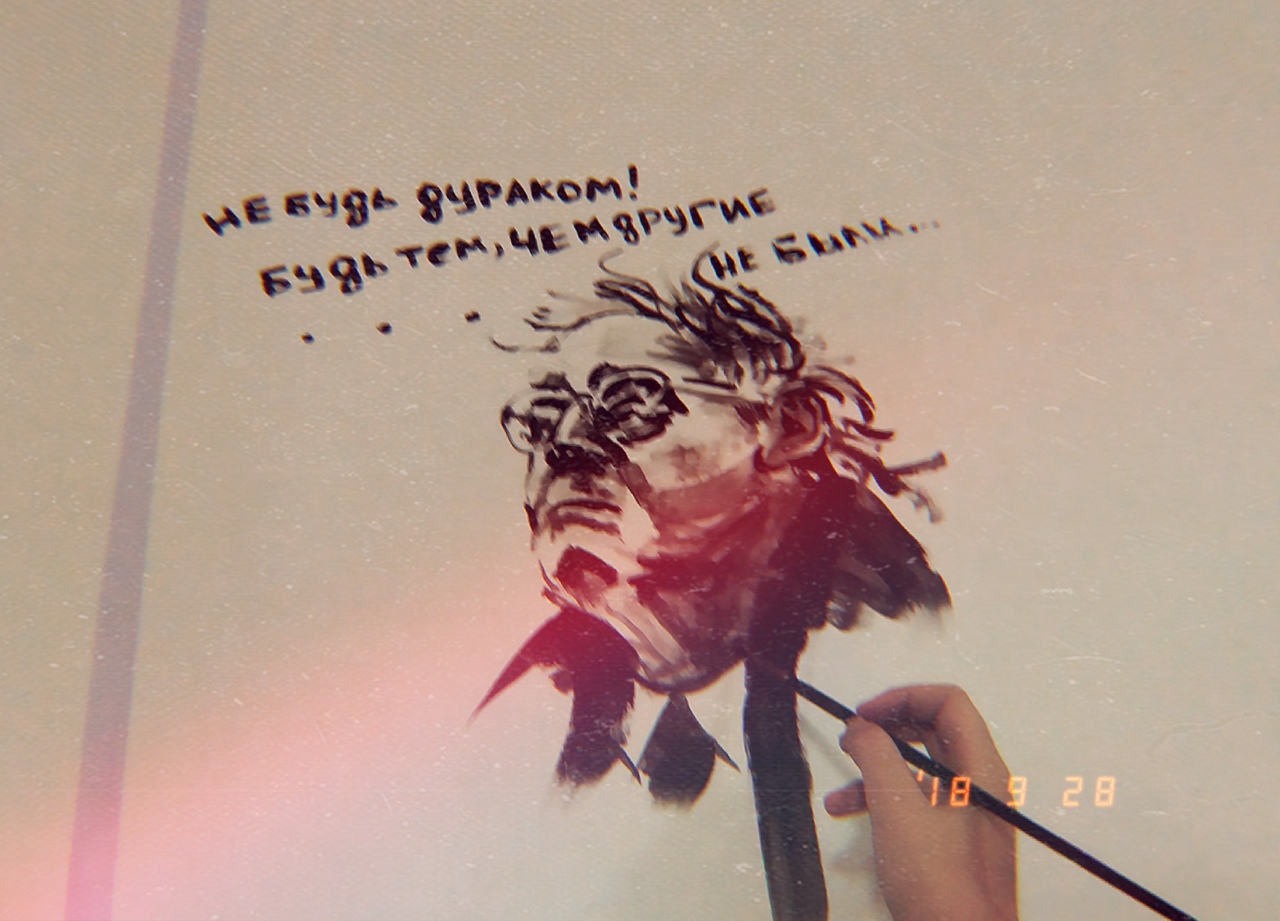 НЕ БУДЬ ДУРАКОМ!
БУДЬ ТЕМ, ЧЕМ ДРУГИЕ
НЕ БЫЛИ...
. . .
'18 9 28